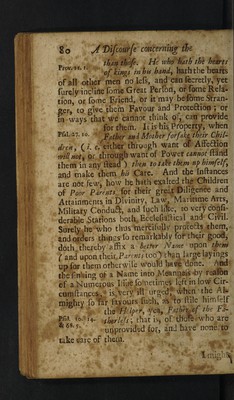 80 A Discourse concerning the
Prov. 21. 1. than those. He who hath the hearts
of kings in his hand, hath the hearts
of all other men no less, and can secretly, yet
surely incline some Great Person, or some Rela-
tion, or some Friend, or it may be some Stran-
ger, to give them Favour and Protection; or
in ways that we cannot think of, can provide
for them. It is his Property, when
Psal. 27. 10. Father and Mother forsake their Chil-
dren, (i. e. either through want of Affection
will not, or through want of Power cannot stand
them in any stead) then to take them up himself,
and make them his Care. And the Instances
are not few, how he hath exalted the Children
of Poor Parents for their great Diligence and
Attainments in Divinity, Law, Maritime Arts,
Military Conduct, and such like, to very consi-
derable Stations both Ecclesiastical and Civil.
Surely he who thus mercifully protects them,
and orders things so remarkably for their good,
doth thereby affix a better Name upon them
(and upon their Parents too) than large layings
up for them otherwise would have done. And
the sinking of a Name into Meanness by reason
of a Numerous Issue sometimes left in low Cir-
cumstances, is very ill urged, when the Al-
mighty so far favours such, as to stile himself
Psal. 10. 14. the Helper, yea, Father of the Fa-
& 68. 5. therless; that is, of those who are
unprovided for, and have none to
take care of them.
I might